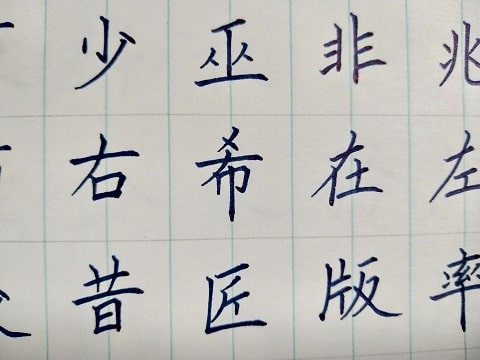 少巫非兆
右希在左
昔匠版率